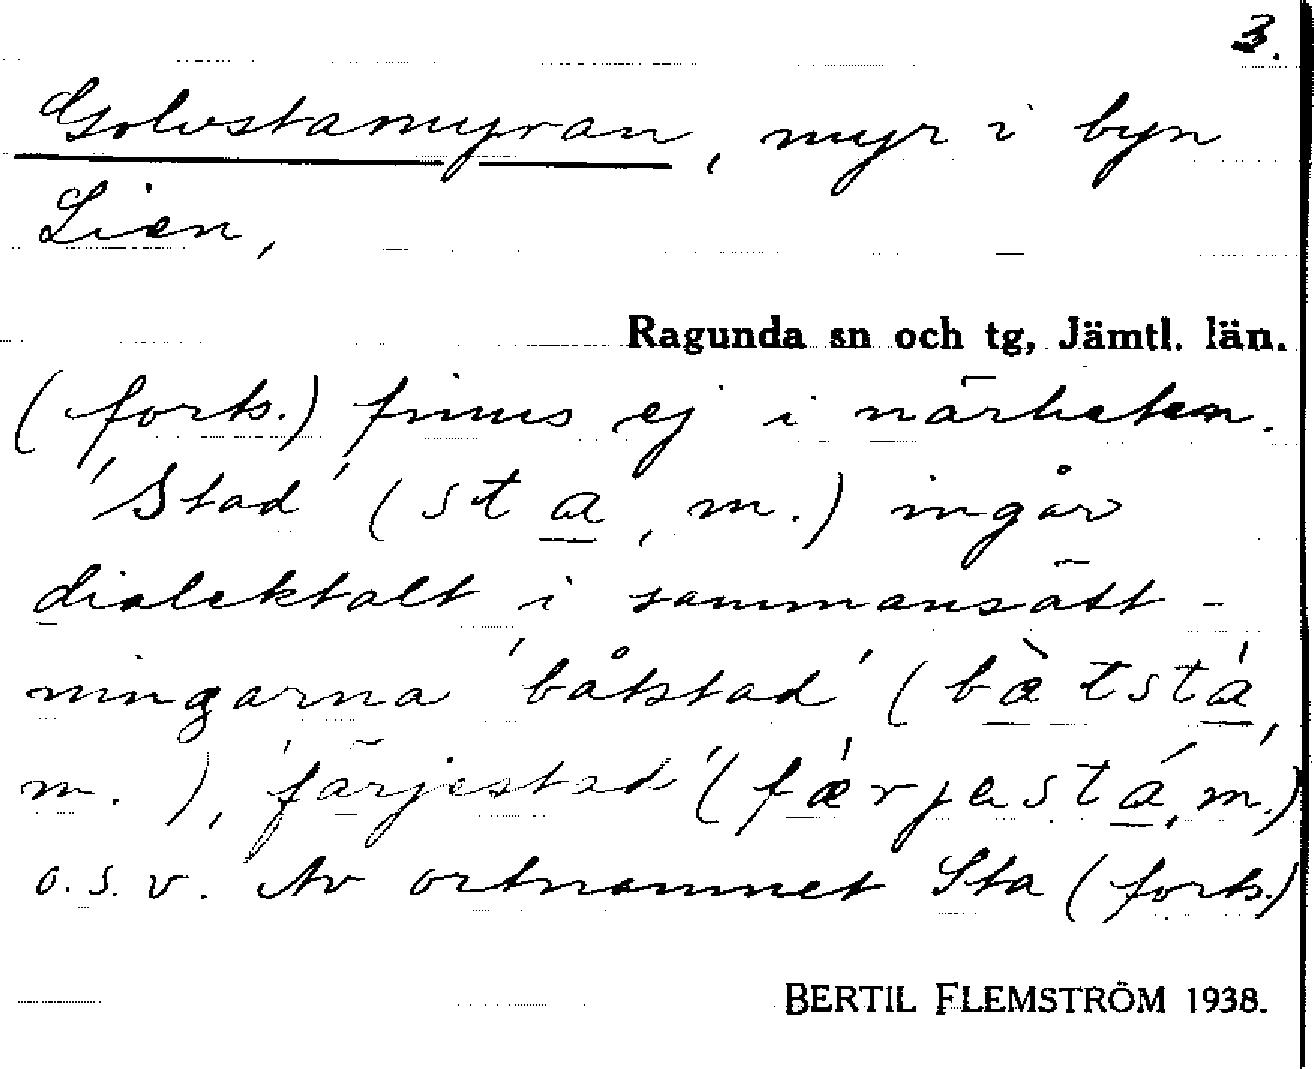 3.
Golvstamyran, myr i byn
Lien,
Ragunda sn och tg, Jämtl. län.
(forts.) finns ej i närheten.
'Stad' (sta, m.) ingår
dialektalt i sammansätt-
ningarna 'båtstad' (bà̱tstá̱,
m.), 'färjestad' (fǽrjestá, m.)
o.s.v. Av ortnamnet Sta (forts.)
BERTIL FLEMSTRÖM 1938.